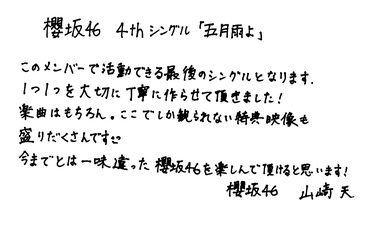 櫻坂46 4thシングル「五月雨よ」
このメンバーで活動できる最後のシングルとなります。
1つ1つを大切に丁寧に作らせて頂きました!
楽曲はもちろん。ここでしか観られない特典映像も
盛りだくさんです
今までとは一味違った櫻坂46を楽しんで頂けると思います!
櫻坂46 山﨑 天